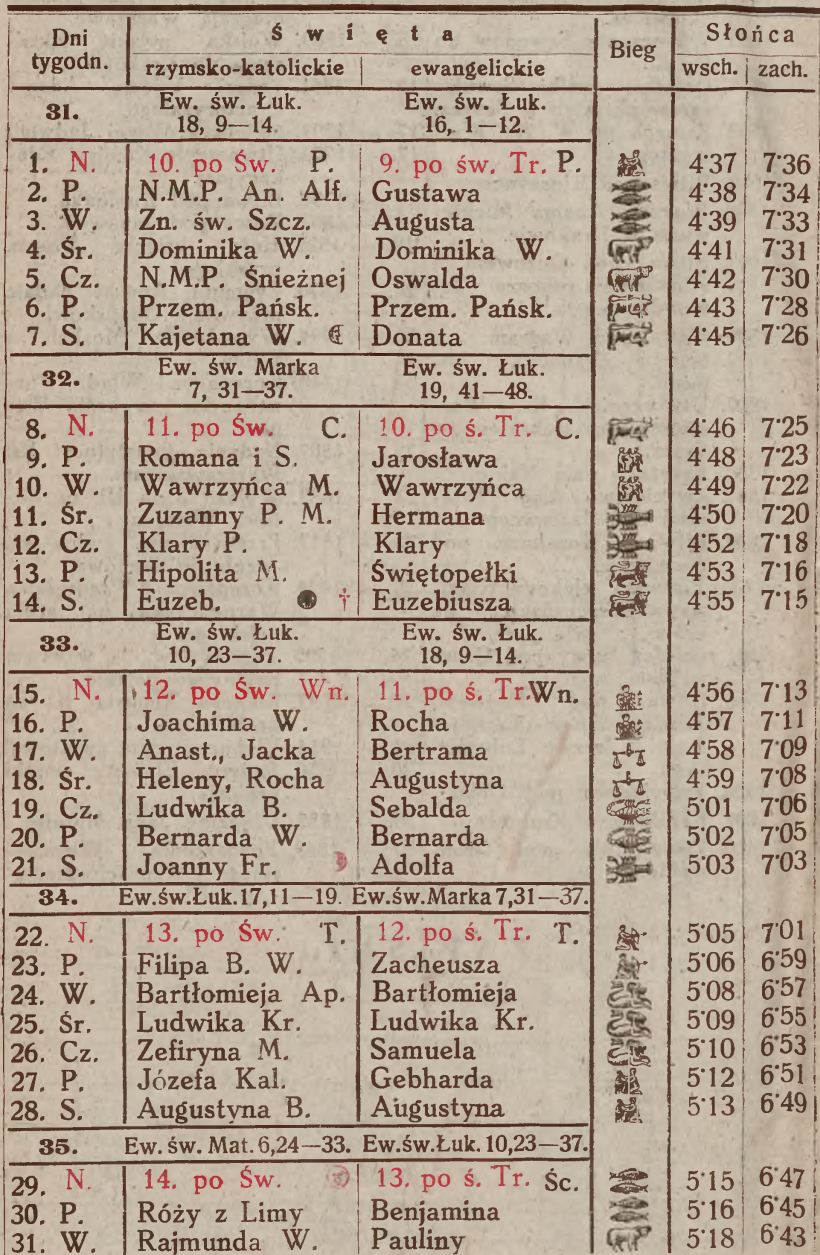 Dni tygodn. Święta Bieg Słońca
rzymsko-katolickie ewangelickie wsch. zach.
31. Ew. św. Łuk. 18, 9—14. Ew. św. Łuk. 16, 1—12.
1. N. 10. po Św. P. 9. po św. Tr. P. 4·37 7·36
2. P. N.M.P. An. Alf. Gustawa 4·38 7·34
3. W. Zn. św. Szcz. Augusta 4·39 7·33
4. Śr. Dominika W. Dominika W. 4·41 7·31
5. Cz. N.M.P. Śnieżnej Oswalda 4·42 7·30
6. P. Przem. Pańsk. Przem. Pańsk. 4·43 7·28
7. S. Kajetana W. Donata 4·45 7·26
32. Ew. św. Marka 7, 31—37. Ew. św. Łuk. 19, 41—48.
8. N. 11. po Św. C. 10. po ś. Tr. C. 4·46 7·25
9. P. Romana i S. Jarosława 4·48 7·23
10. W. Wawrzyńca M. Wawrzyńca 4·49 7·22
11. Śr. Zuzanny P. M. Hermana 4·50 7·20
12. Cz. Klary P. Klary 4·52 7·18
13. P. Hipolita M. Świętopełki 4·53 7·16
14. S. Euzeb. † Euzebiusza 4·55 7·15
33. Ew. św. Łuk. 10, 23—37. Ew. św. Łuk. 18, 9—14.
15. N. 12. po Św. Wn. 11. po ś. Tr. Wn. 4·56 7·13
16. P. Joachima W. Rocha 4·57 7·11
17. W. Anast., Jacka Bertrama 4·58 7·09
18. Śr. Heleny, Rocha Augustyna 4·59 7·08
19. Cz. Ludwika B. Sebalda 5·01 7·06
20. P. Bernarda W. Bernarda 5·02 7·05
21. S. Joanny Fr. Adolfa 5·03 7·03
34. Ew.św.Łuk.17,11—19. Ew.św.Marka 7,31—37.
22. N. 13. po Św. T. 12. po ś. Tr. T. 5·05 7·01
23. P. Filipa B. W. Zacheusza 5·06 6·59
24. W. Bartłomieja Ap. Bartłomieja 5·08 6·57
25. Śr. Ludwika Kr. Ludwika Kr. 5·09 6·55
26. Cz. Zefiryna M. Samuela 5·10 6·53
27. P. Józefa Kal. Gebharda 5·12 6·51
28. S. Augustyna B. Augustyna 5·13 6·49
35. Ew. św. Mat. 6,24—33. Ew.św.Łuk. 10,23—37.
29. N. 14. po Św. 13. po ś. Tr. Śc. 5·15 6·47
30. P. Róży z Limy Benjamina 5·16 6·45
31. W. Rajmunda W. Pauliny 5·18 6·43